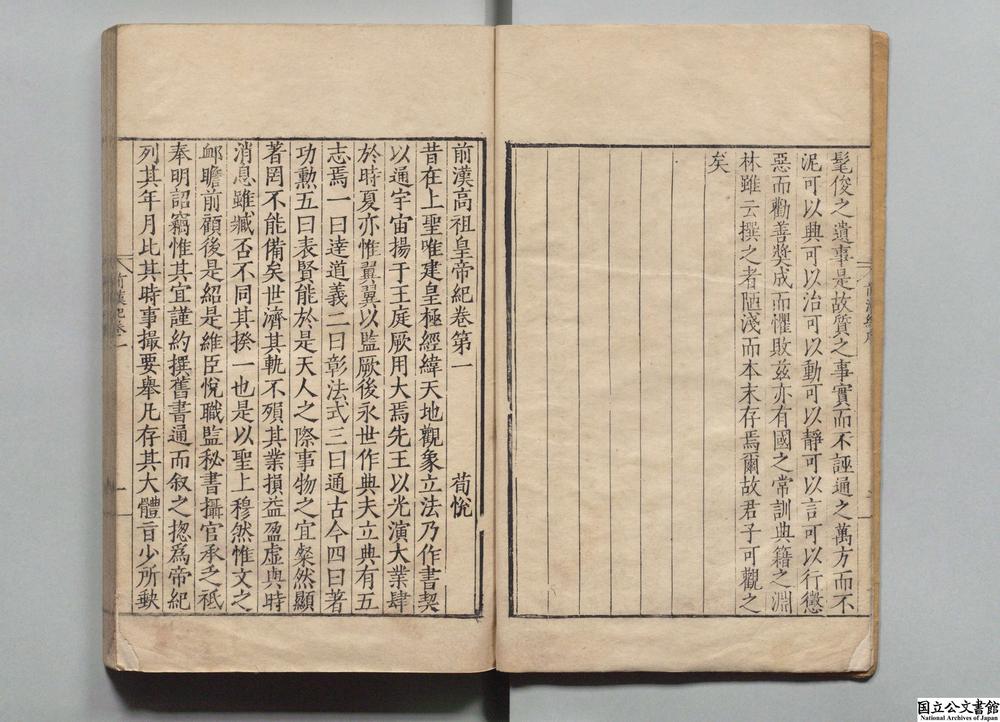 髦俊之遺事是故質之事實而不誣通之萬方而不
泥可以典可以治可以動可以靜可以言可以行懲
惡而勸善奬成而懼敗兹亦有國之常訓典籍之淵
林雖云撰之者陋淺而本末存焉爾故君子可觀之
矣
前漢高祖皇帝紀卷第一 荀悅
昔在上聖唯建皇極經緯天地觀象立法乃作書契
以通宇宙揚于王庭厥用大焉先王以光演大業肆
於時夏亦惟翼翼以監厥後永世作典夫立典有五
志焉一曰達道義二曰彰法式三曰通古今四曰著
功勲五曰表賢能於是天人之際事物之宜粲然顯
著罔不能備矣世濟其軌不殞其業損益盈虛與時
消息雖臧否不同其揆一也是以聖上穆然惟文之
卹瞻前顧後是紹是維臣悅職監秘書攝官承乏祗
奉明詔竊惟其宜謹約撰舊書通而叙之揔爲帝紀
列其年月比其時事撮要舉凡存其大體旨少所缺
前漢紀卷一
一
国立公文書館
National Archives of Japan